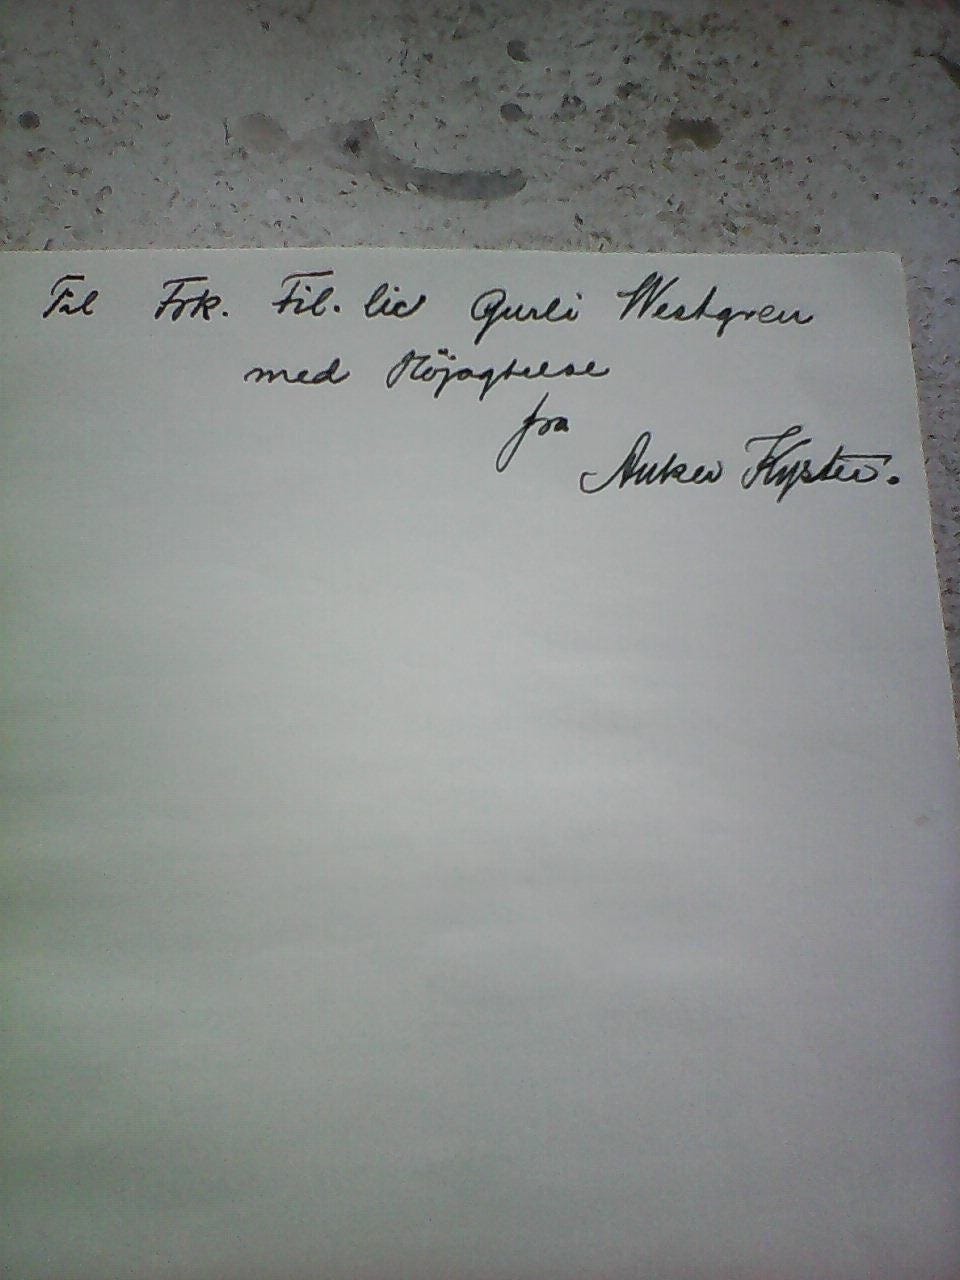 Til Frk. Fil. lic Gurli Westgren
med Höjagtelse
fra
Anker Kyster.